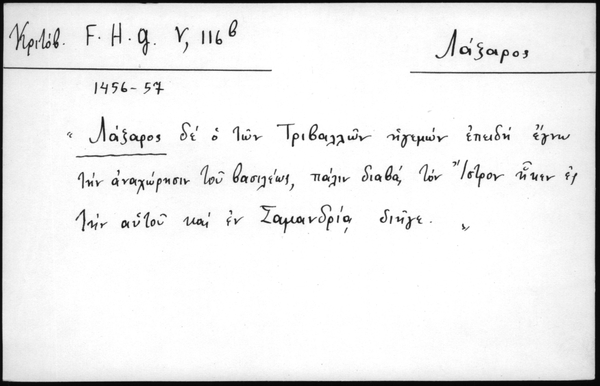 Κριτόβ. F. H. g. V, 116 b
Λάζαρος
1456-57
" Λάζαρος δέ ὁ τῶν Τριβαλλῶν ἡγεμών ἐπειδή ἔγνω
τήν ἀναχώρησιν τοῦ βασιλέως, πάλιν διαβάς τόν Ἴστρον ἧκεν ἐς
τήν αὑτοῦ καί ἐν Σαμανδρίᾳ διῆγε. "